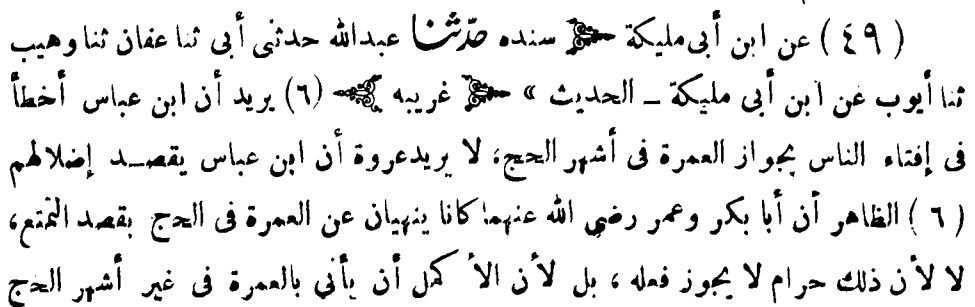 ( ٤٩ ) عن ابن أبى مليكة سنده حدّثنا عبدالله حدثنى أبى ثنا عفان ثنا وهيب
ثنا أيوب عن ابن أبى مليكة ـ الحديث » غريبه (٦) يريد أن ابن عباس أخطأ
فى إفتاء الناس بجواز العمرة فى أشهر الحج، لا يريدعروة أن ابن عباس يقصـد إضلالهم
( ٦ ) الظاهر أن أبا بكر وعمر رضى الله عنهما كانا ينهيان عن العمرة فى الحج بقصد التمتع،
لا لأن ذلك حرام لا يجوز فعله ، بل لأن الأكمل أن يأتى بالعمرة فى غير أشهر الحج